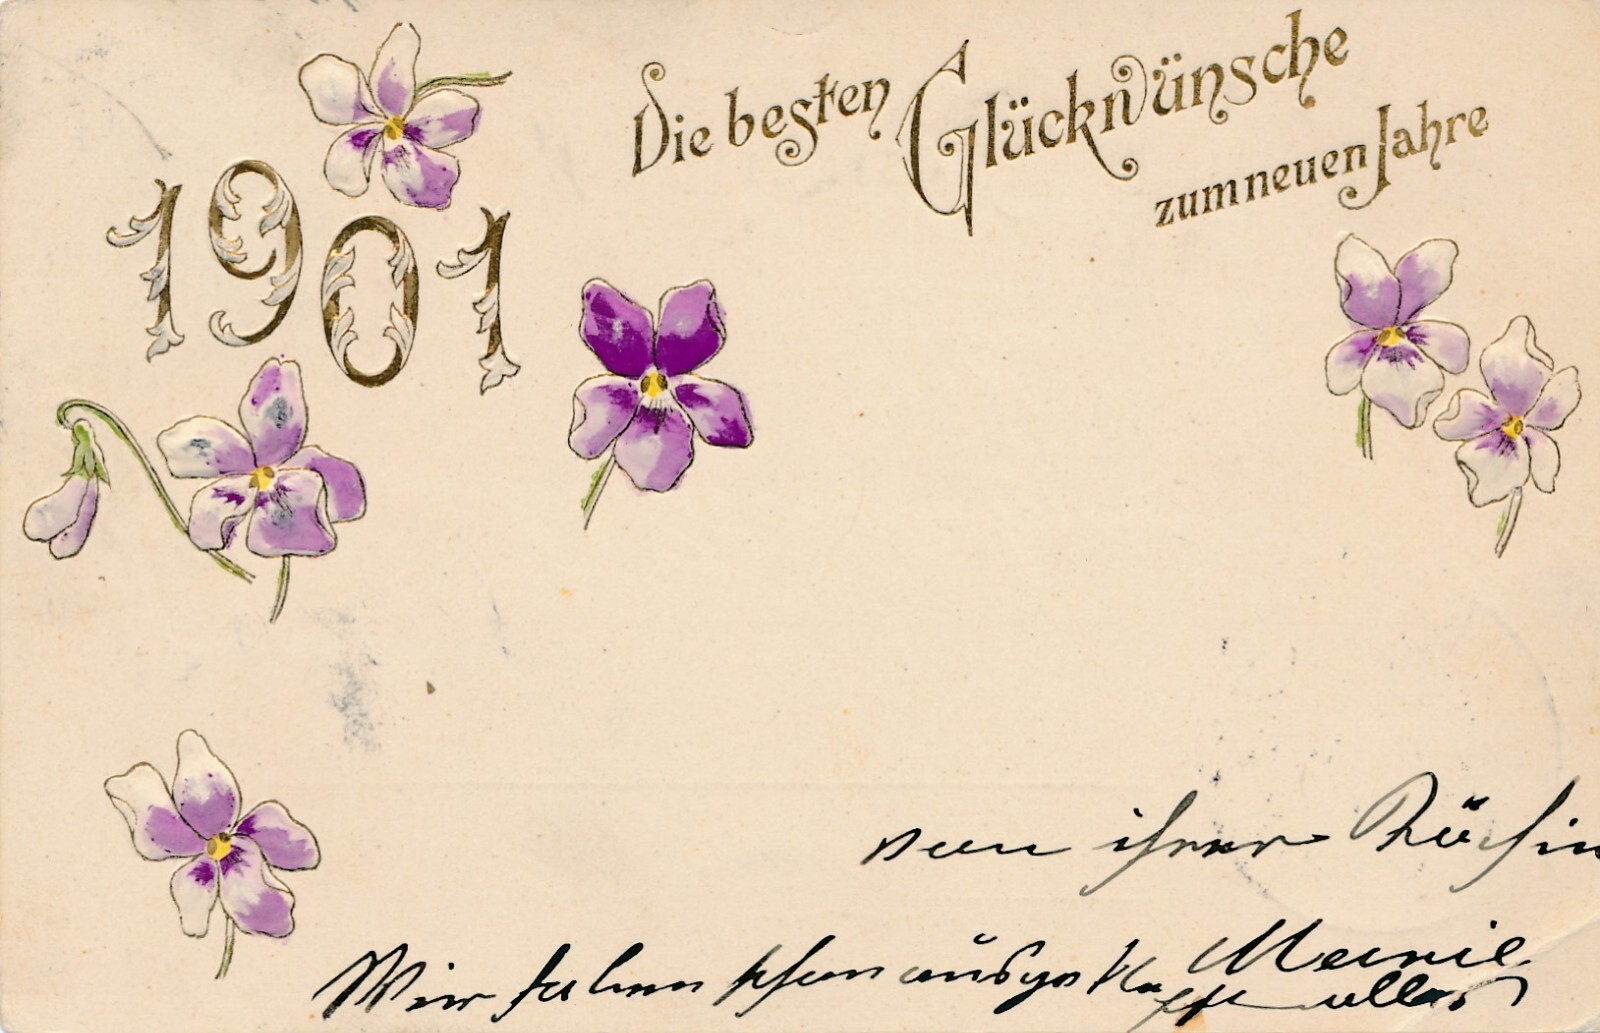 1901
Die besten Glückwünsche
zum neuen Jahre
von ihrer Köchin
Marie
Wir haben schon alles